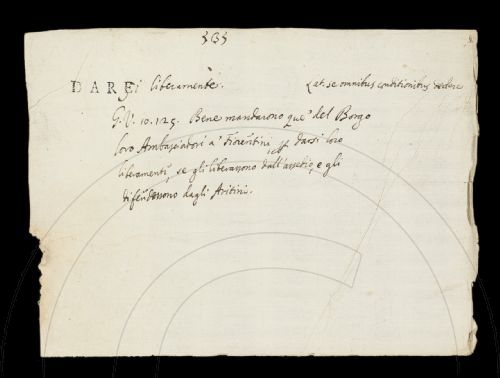 DAREſi liberamente. Lat. se omnibus conditionibus dedere
G. V. 10. 125. Bene mandarono que' del Borgo
loro Ambasciadori a' Fiorentini darsi loro
liberamente, se gli liberassono dall'assedio, e gli
difendessono dagli Aretini.